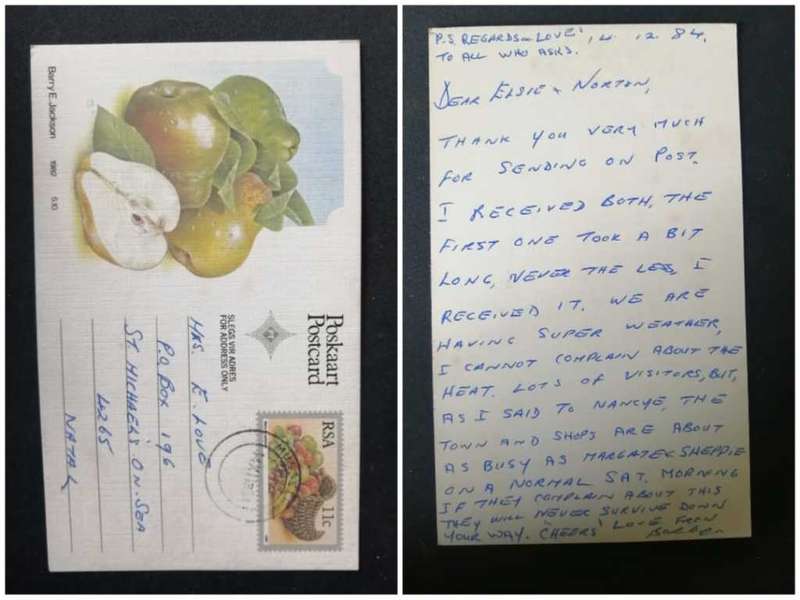 Barry E. Jackson 1982 5.10
Poskaart
Postcard
SLEGS VIR ADRES
FOR ADDRESS ONLY
RSA
11c
MRS. E. LOVE
P.O BOX 196
ST MICHAELS ON-SEA
4265
NATAL
P.S. REGARDS & LOVE' 14. 12. 84.
TO ALL WHO ASKS.
DEAR ELSIE & NORTON,
THANK YOU VERY MUCH
FOR SENDING ON POST.
I RECEIVED BOTH, THE
FIRST ONE TOOK A BIT
LONG, NEVER THE LESS, I
RECEIVED IT. WE ARE
HAVING SUPER WEATHER,
I CANNOT COMPLAIN ABOUT THE
HEAT. LOTS OF VISITORS, BUT,
AS I SAID TO NANCYE, THE
TOWN AND SHOPS ARE ABOUT
AS BUSY AS MARGATE & SHEPPIE
ON A NORMAL SAT. MORNING
IF THEY COMPLAIN ABOUT THIS
THEY WILL NEVER SURVIVE DOWN
YOUR WAY. 'CHEERS' LOVE FROM